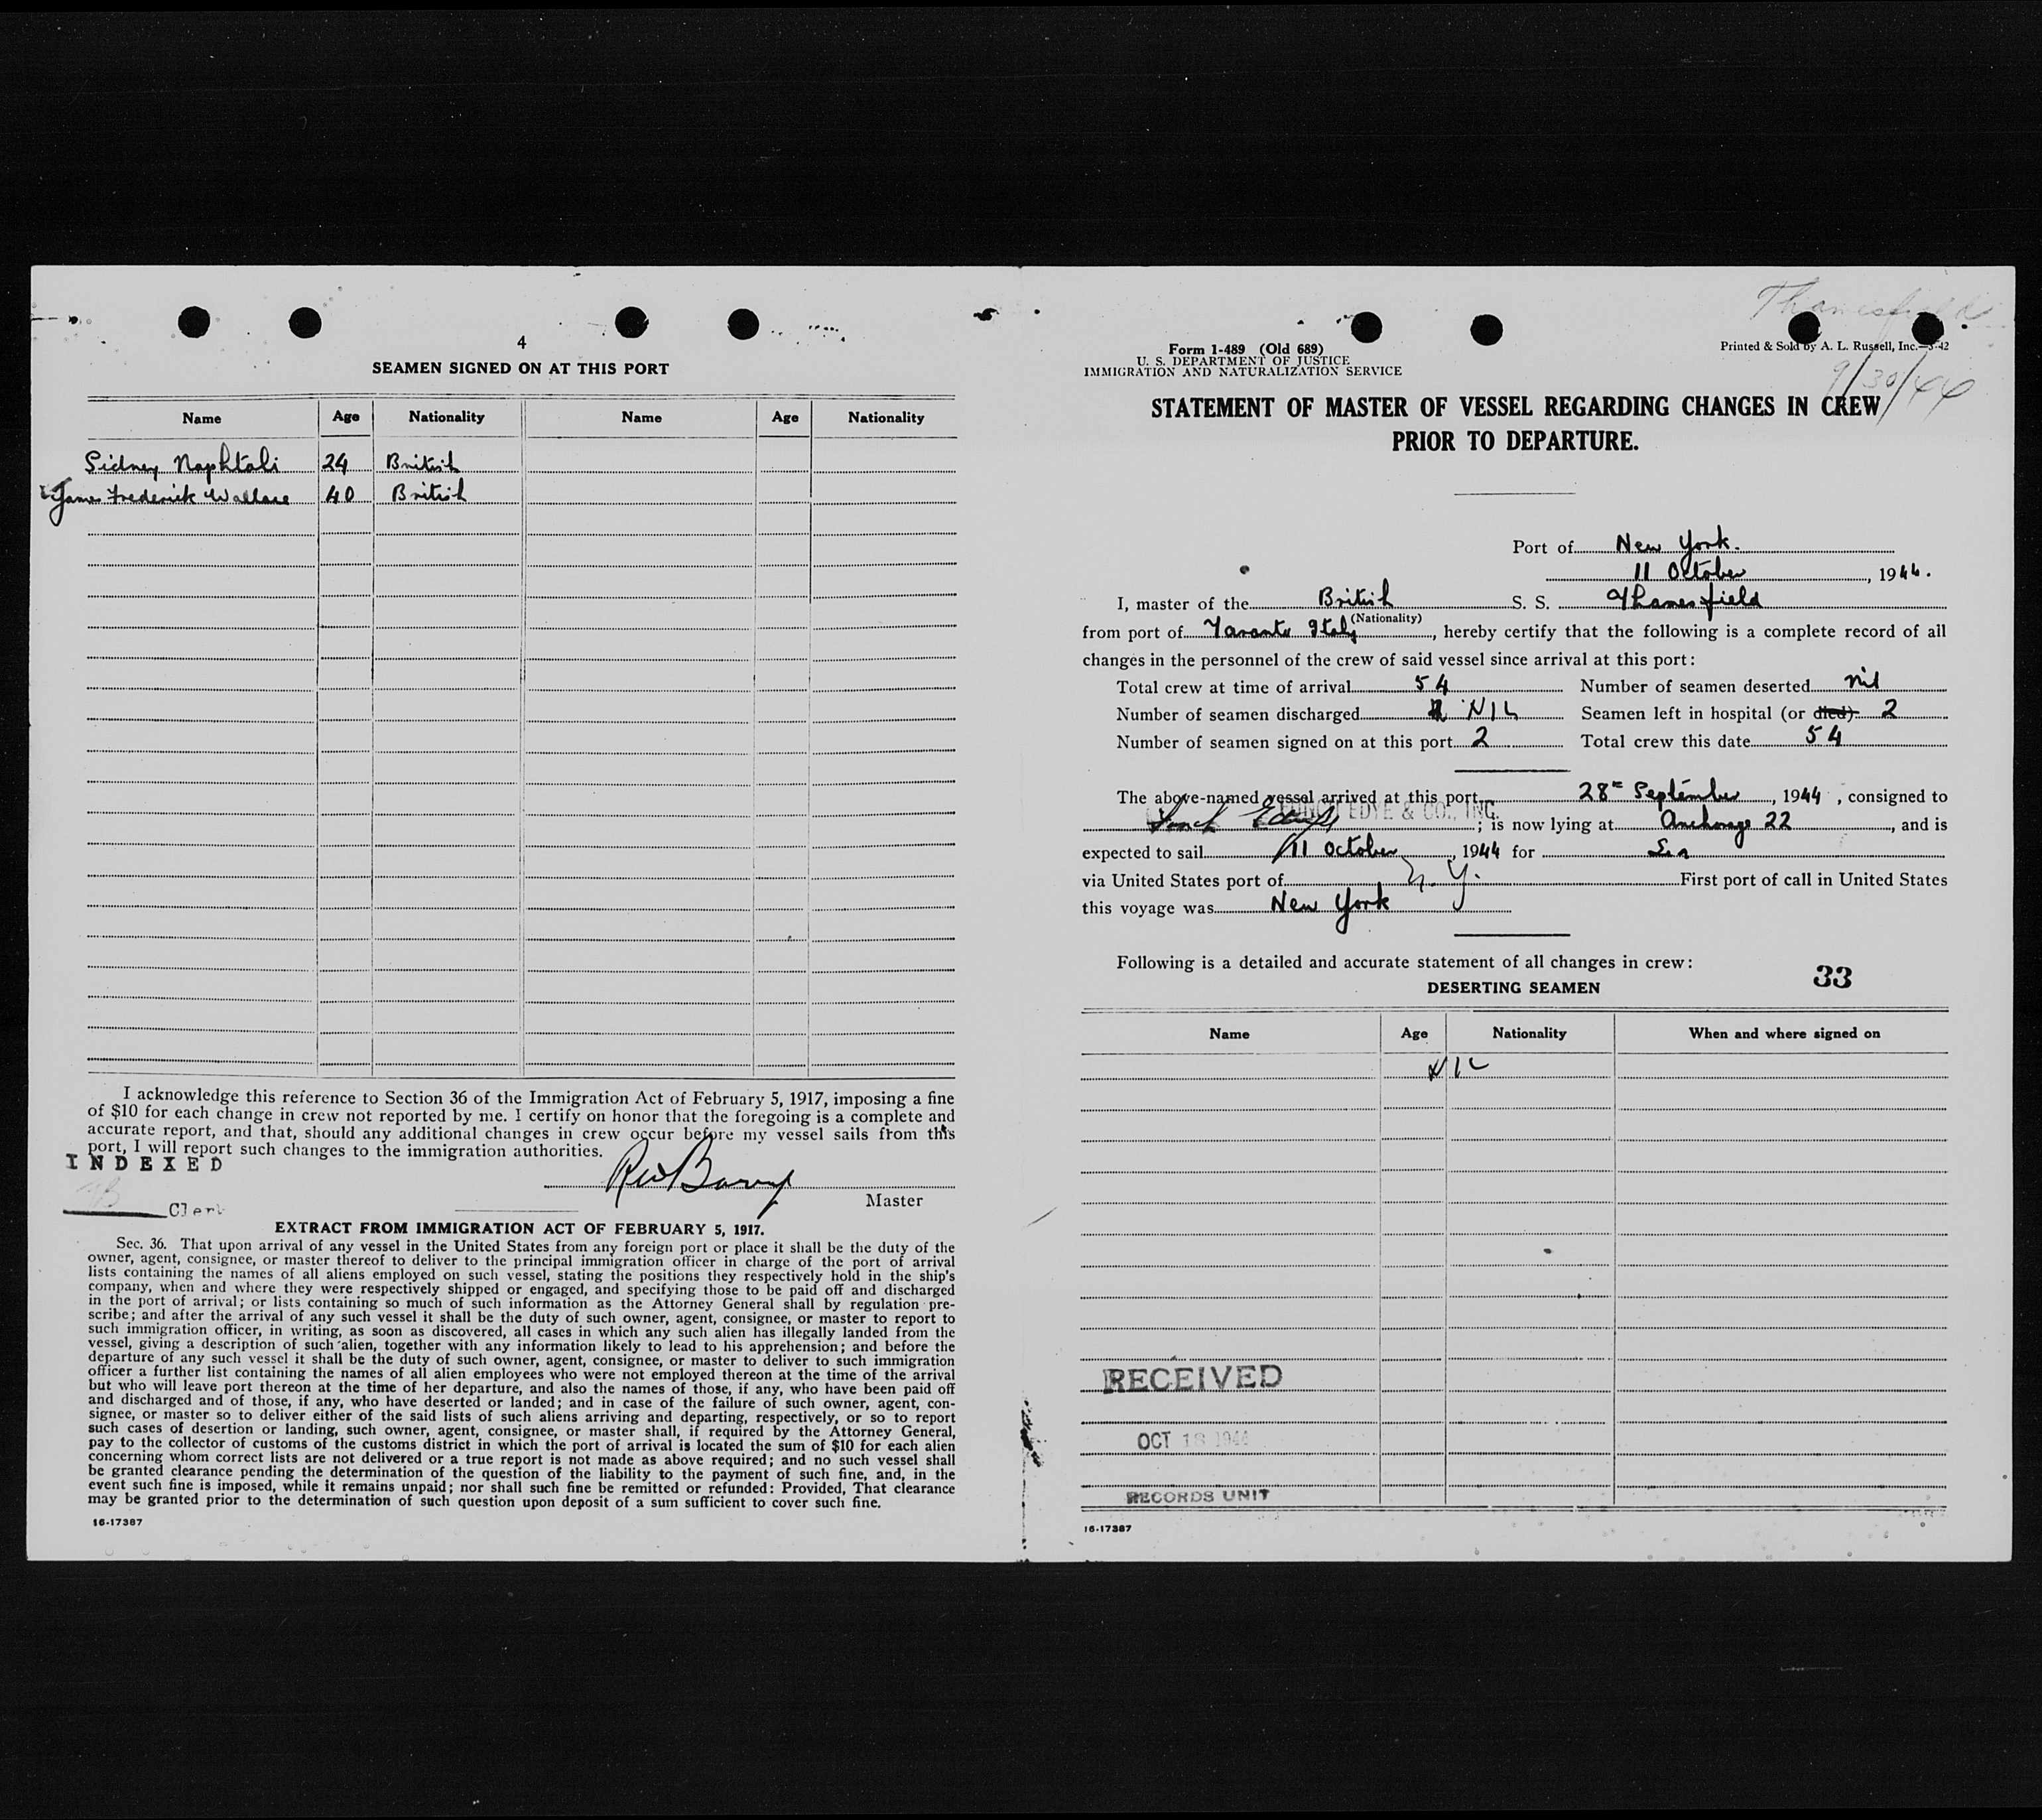 4
SEAMEN SIGNED ON AT THIS PORT
Name Age Nationality Name Age Nationality
Sidney Naphtali 24 British
James Frederick Wallace 40 British
I acknowledge this reference to Section 36 of the Immigration Act of February 5, 1917, imposing a fine
of $10 for each change in crew not reported by me. I certify on honor that the foregoing is a complete and
accurate report, and that, should any additional changes in crew occur before my vessel sails from this
port, I will report such changes to the immigration authorities.
INDEXED
Master
Clerk
EXTRACT FROM IMMIGRATION ACT OF FEBRUARY 5, 1917.
Sec. 36. That upon arrival of any vessel in the United States from any foreign port or place it shall be the duty of the
owner, agent, consignee, or master thereof to deliver to the principal immigration officer in charge of the port of arrival
lists containing the names of all aliens employed on such vessel, stating the positions they respectively hold in the ship's
company, when and where they were respectively shipped or engaged, and specifying those to be paid off and discharged
in the port of arrival; or lists containing so much of such information as the Attorney General shall by regulation pre-
scribe; and after the arrival of any such vessel it shall be the duty of such owner, agent, consignee, or master to report to
such immigration officer, in writing, as soon as discovered, all cases in which any such alien has illegally landed from the
vessel, giving a description of such alien, together with any information likely to lead to his apprehension; and before the
departure of any such vessel it shall be the duty of such owner, agent, consignee, or master to deliver to such immigration
officer a further list containing the names of all alien employees who were not employed thereon at the time of the arrival
but who will leave port thereon at the time of her departure, and also the names of those, if any, who have been paid off
and discharged and of those, if any, who have deserted or landed; and in case of the failure of such owner, agent, con-
signee, or master so to deliver either of the said lists of such aliens arriving and departing, respectively, or so to report
such cases of desertion or landing, such owner, agent, consignee, or master shall, if required by the Attorney General,
pay to the collector of customs of the customs district in which the port of arrival is located the sum of $10 for each alien
concerning whom correct lists are not delivered or a true report is not made as above required; and no such vessel shall
be granted clearance pending the determination of the question of the liability to the payment of such fine, and, in the
event such fine is imposed, while it remains unpaid; nor shall such fine be remitted or refunded: Provided, That clearance
may be granted prior to the determination of such question upon deposit of a sum sufficient to cover such fine.
16-17387
Thanesfield
Form 1-489 (Old 689)
U. S. DEPARTMENT OF JUSTICE
IMMIGRATION AND NATURALIZATION SERVICE
Printed & Sold by A. L. Russell, Inc.—3-42
9/30/44
STATEMENT OF MASTER OF VESSEL REGARDING CHANGES IN CREW
PRIOR TO DEPARTURE.
Port of New York.
11 October, 1944.
I, master of the British S. S. Thanesfield
(Nationality)
from port of Taranto Italy, hereby certify that the following is a complete record of all
changes in the personnel of the crew of said vessel since arrival at this port:
Total crew at time of arrival 54 Number of seamen deserted nil
Number of seamen discharged NIL Seamen left in hospital (or died) 2
Number of seamen signed on at this port 2 Total crew this date 54
The above-named vessel arrived at this port 28th September, 1944, consigned to
FUNCH EDYE & CO., INC.
; is now lying at Anchorage 22, and is
expected to sail 11 October, 1944 for Sea
via United States port of N. Y. First port of call in United States
this voyage was New York
Following is a detailed and accurate statement of all changes in crew:
33
DESERTING SEAMEN
Name Age Nationality When and where signed on
NIL
RECEIVED
OCT 18 1944
RECORDS UNIT
16-17387